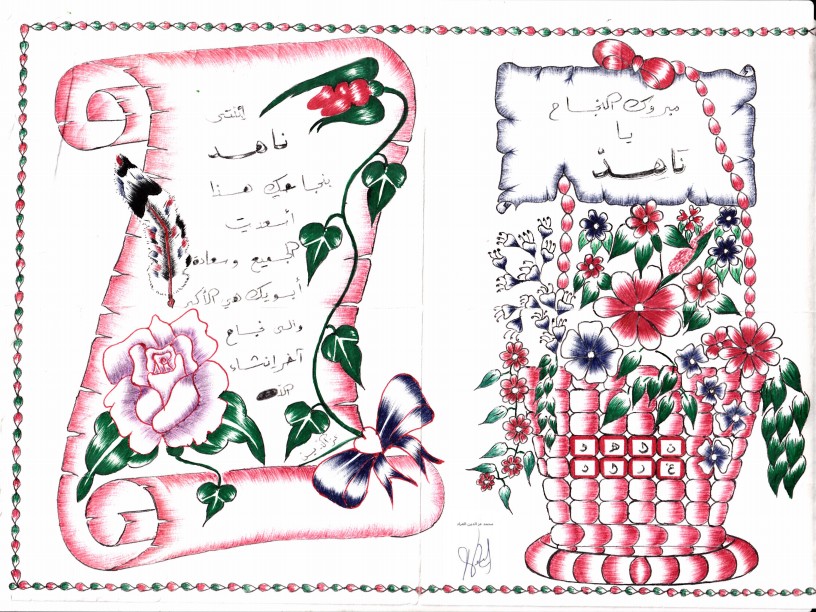 مبروك النجاح
يا
نَاهِدْ
إبنتي
ناهد
بنجاحك هذا
أسعدت
الجميع وسعادة
أبويك هي الأكبر
وإلى نجاح
آخر إنشاء
الله
ن ا ه د